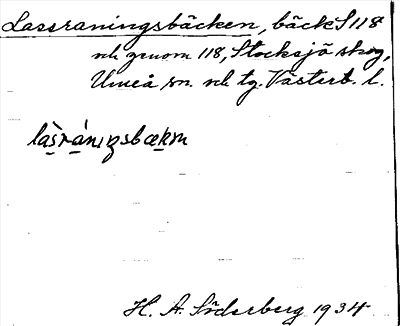 Lassraningsbäcken, bäck S 118
och genom 118, Stocksjö skog,
Umeå sn. och tg. Västerb. l.
làsrániŋsbækɱ
H. A. Söderberg 1934